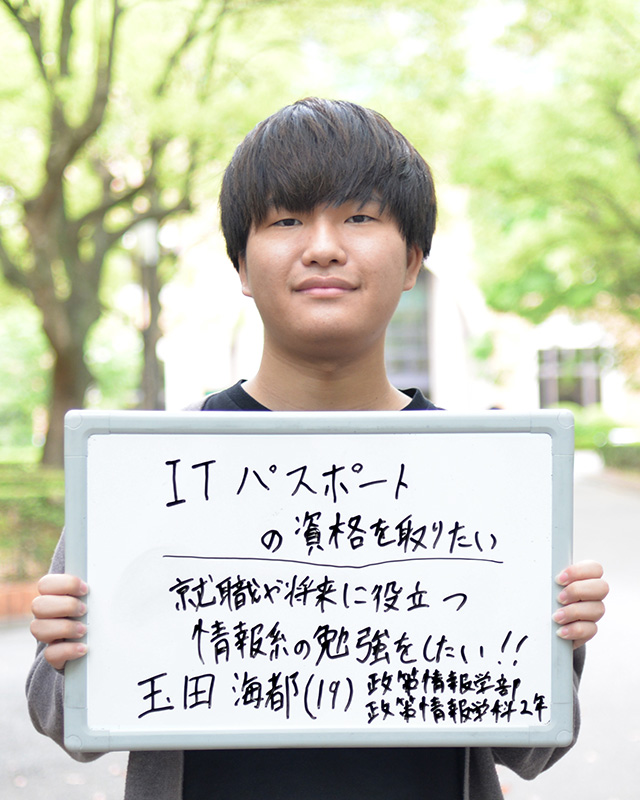 ITパスポート
の資格を取りたい
就職や将来に役立つ
情報系の勉強をしたい!!
玉田 海都(19) 政策情報学部
政策情報学科2年